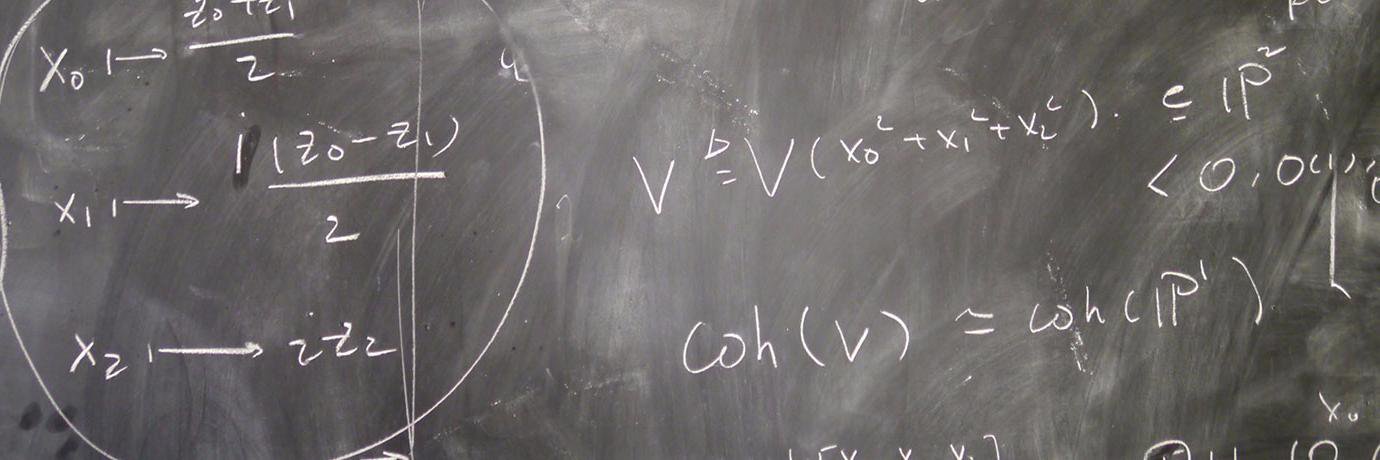 x₀ ↦ z₀+z₁ / 2
x₁ ↦ i(z₀-z₁) / 2
x₂ ↦ iz₂
V = V(x₀²+x₁²+x₂²). ⊆ ℙ²
< O, O(1),
Coh(V) ≃ coh(ℙ¹)
x₀